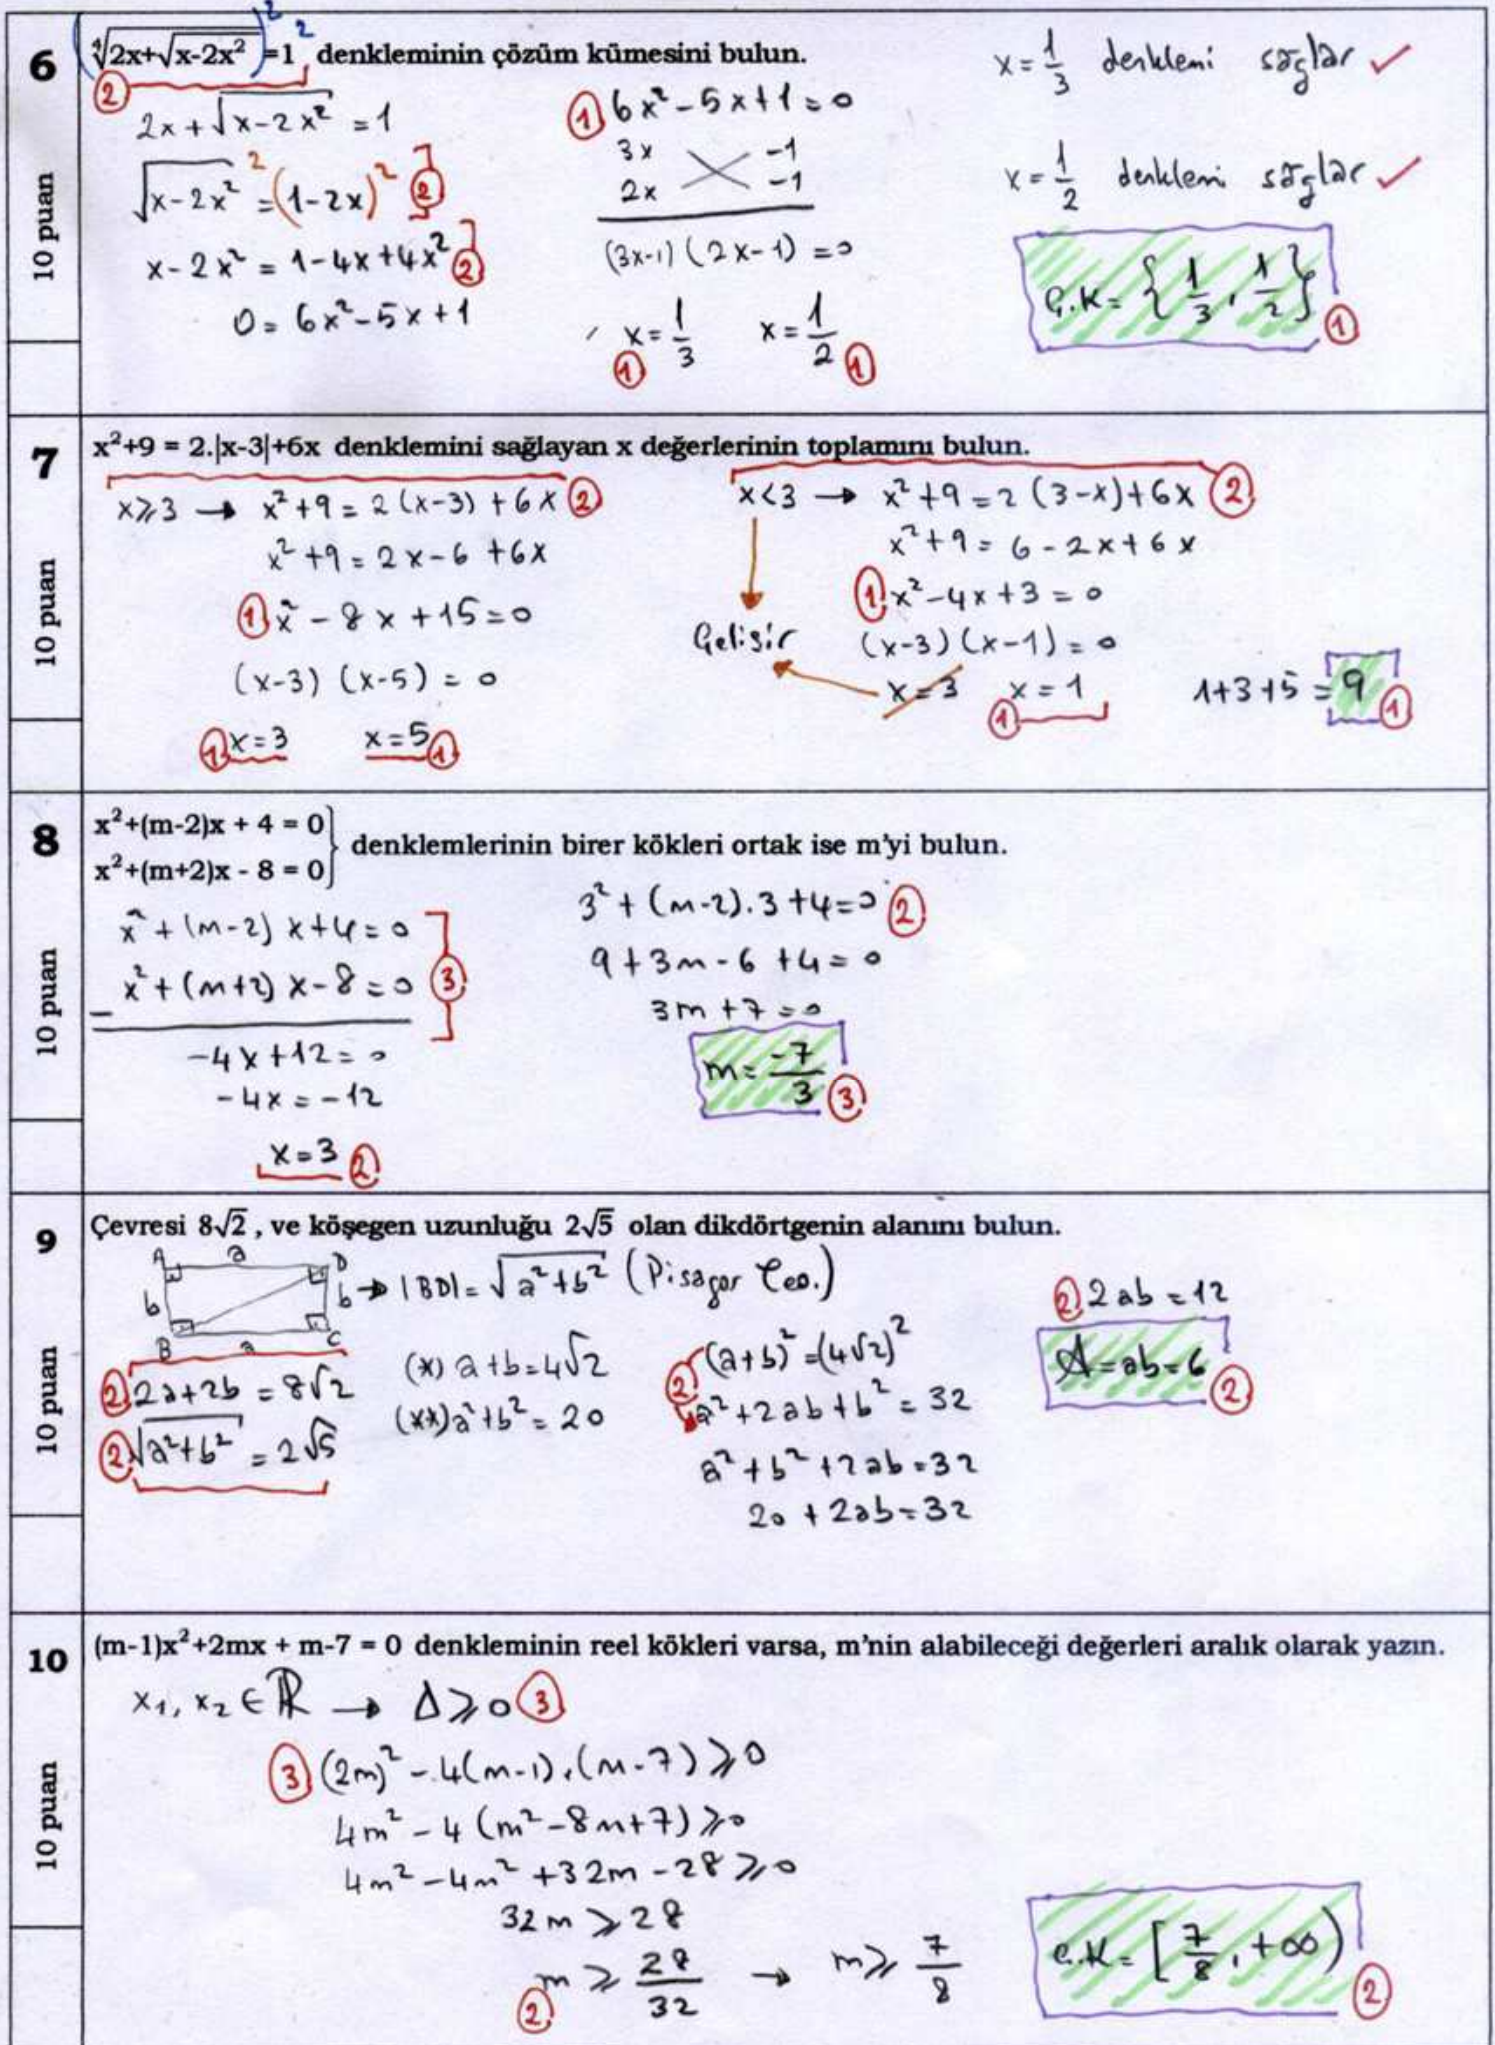 6
10 puan
(∜2x+√x-2x²)²=1² denkleminin çözüm kümesini bulun.
② 2x+√x-2x² = 1
√x-2x²² = (1-2x)² ②
x-2x² = 1-4x+4x² ②
0 = 6x²-5x+1
① 6x²-5x+1=0
3x -1
2x -1
(3x-1)(2x-1)=0
x=1/3 ① x=1/2 ①
x=1/3 denklemi sağlar ✓
x=1/2 denklemi sağlar ✓
Ç.K= {1/3, 1/2} ①
7
10 puan
x²+9 = 2.|x-3|+6x denklemini sağlayan x değerlerinin toplamını bulun.
x⩾3 → x²+9=2(x-3)+6x ②
x²+9=2x-6+6x
① x²-8x+15=0
(x-3)(x-5)=0
① x=3 x=5 ①
x<3 → x²+9=2(3-x)+6x ②
x²+9=6-2x+6x
① x²-4x+3=0
Çelişir (x-3)(x-1)=0
x=3 x=1 ①
1+3+5=9 ①
8
10 puan
x²+(m-2)x + 4 = 0
x²+(m+2)x - 8 = 0} denklemlerinin birer kökleri ortak ise m'yi bulun.
x²+(m-2)x+4=0
- x²+(m+2)x-8=0 ③
-4x+12=0
-4x=-12
x=3 ②
3²+(m-2).3+4=0 ②
9+3m-6+4=0
3m+7=0
m=-7/3 ③
9
10 puan
Çevresi 8√2 , ve köşegen uzunluğu 2√5 olan dikdörtgenin alanını bulun.
A a D
b b → |BD|=√a²+b² (Pisagor Teo.)
B a C
② 2a+2b=8√2
② √a²+b² = 2√5
(*) a+b=4√2
(**) a²+b²=20
② (a+b)²=(4√2)²
a²+2ab+b²=32
a²+b²+2ab=32
20+2ab=32
② 2ab=12
A=ab=6 ②
10
10 puan
(m-1)x²+2mx + m-7 = 0 denkleminin reel kökleri varsa, m'nin alabileceği değerleri aralık olarak yazın.
x₁, x₂ ∈ ℝ → Δ⩾0 ③
③ (2m)²-4(m-1).(m-7)⩾0
4m²-4(m²-8m+7)⩾0
4m²-4m²+32m-28⩾0
32m⩾28
② m⩾28/32 → m⩾7/8
Ç.K= [7/8, +∞) ②